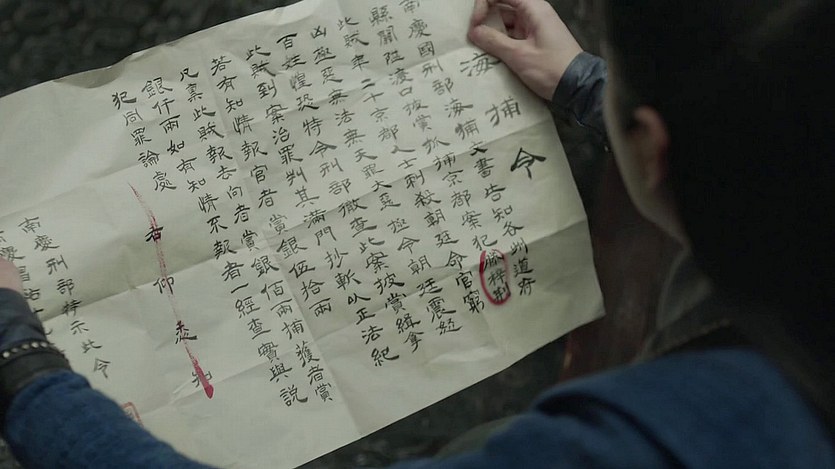 海捕令
南慶國刑部海捕文書告知各州道府
縣關隘渡口披賞抓捕京都案犯滕梓荆
此賊年二十京都人士刺殺朝廷命官窮
凶極惡無法無天罪大惡極令朝廷震怒
百姓煌恐特令刑部徹查此案披賞緝拿
此賊到案治罪判其滿門抄斬以正法紀
若有知情報官者賞銀伍拾兩
凡稟此賊報去向者賞銀佰兩捕獲者賞
銀仟兩如有知情不報者一經查實與説
犯同罪論處
者仰悉知
南慶刑部特示此令